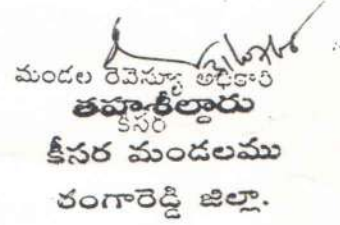 మండల రెవెన్యూ అధికారి
తహశీల్దారు
కీసర
కీసర మండలము
రంగారెడ్డి జిల్లా.